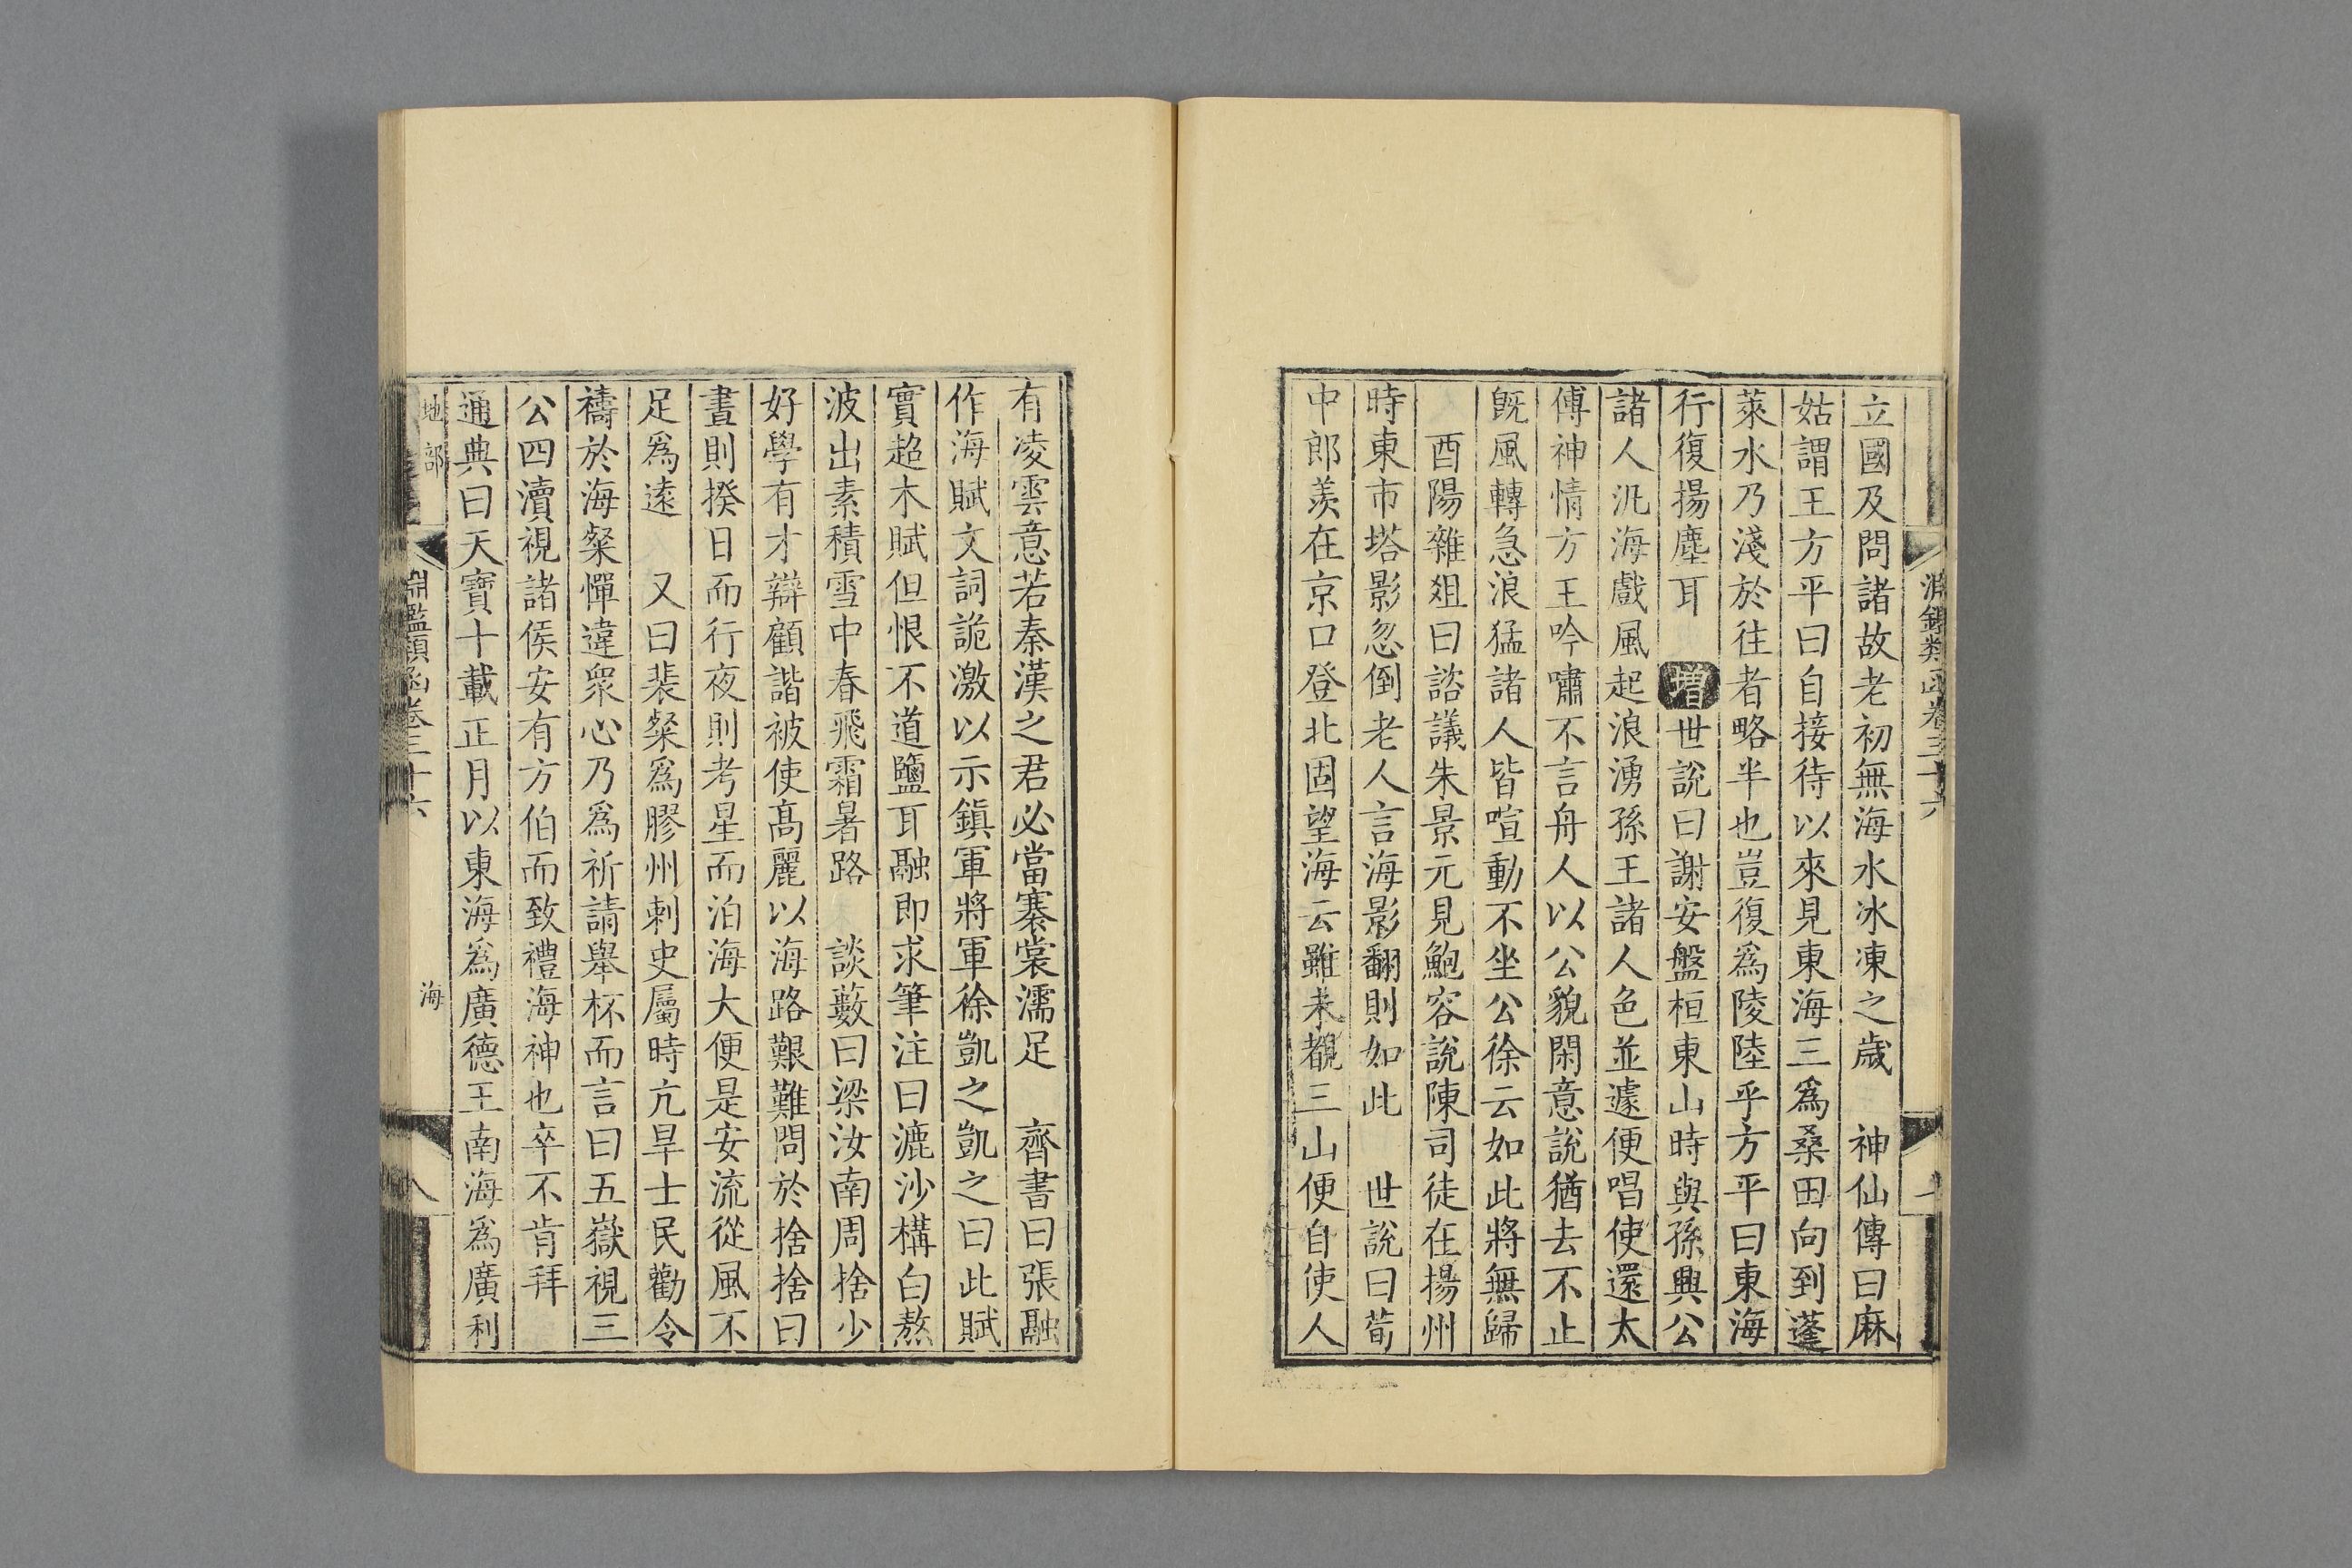 淵鑑類函卷三十六
立國及問諸故老初無海水冰凍之歲　神仙傳曰麻
姑謂王方平曰自接待以來見東海三爲桑田向到蓬
萊水乃淺於往者略半也豈復爲陵陸乎方平曰東海
行復揚塵耳　增世說曰謝安盤桓東山時與孫興公
諸人汎海戲風起浪湧孫王諸人色並遽便唱使還太
傅神情方王吟嘯不言舟人以公貌閑意說猶去不止
旣風轉急浪猛諸人皆喧動不坐公徐云如此將無歸
　酉陽雜俎曰諮議朱景元見鮑容說陳司徒在揚州
時東市塔影忽倒老人言海影翻則如此　世說曰荀
中郎羨在京口登北固望海云雖未覩三山便自使人
有凌雲意若秦漢之君必當褰裳濡足　齊書曰張融
作海賦文詞詭激以示鎮軍將軍徐凱之凱之曰此賦
實超木賦但恨不道鹽耳融卽求筆注曰漉沙構白熬
波出素積雪中春飛霜暑路　談藪曰梁汝南周捨少
好學有才辯顧諧被使高麗以海路艱難問於捨捨曰
晝則揆日而行夜則考星而泊海大便是安流從風不
足爲遠　又曰裴粲爲膠州刺史屬時亢旱士民勸令
禱於海粲憚違衆心乃爲祈請舉杯而言曰五嶽視三
公四瀆視諸侯安有方伯而致禮海神也卒不肯拜
通典曰天寶十載正月以東海爲廣德王南海爲廣利
地部　淵鑑類函卷三十六　海　八